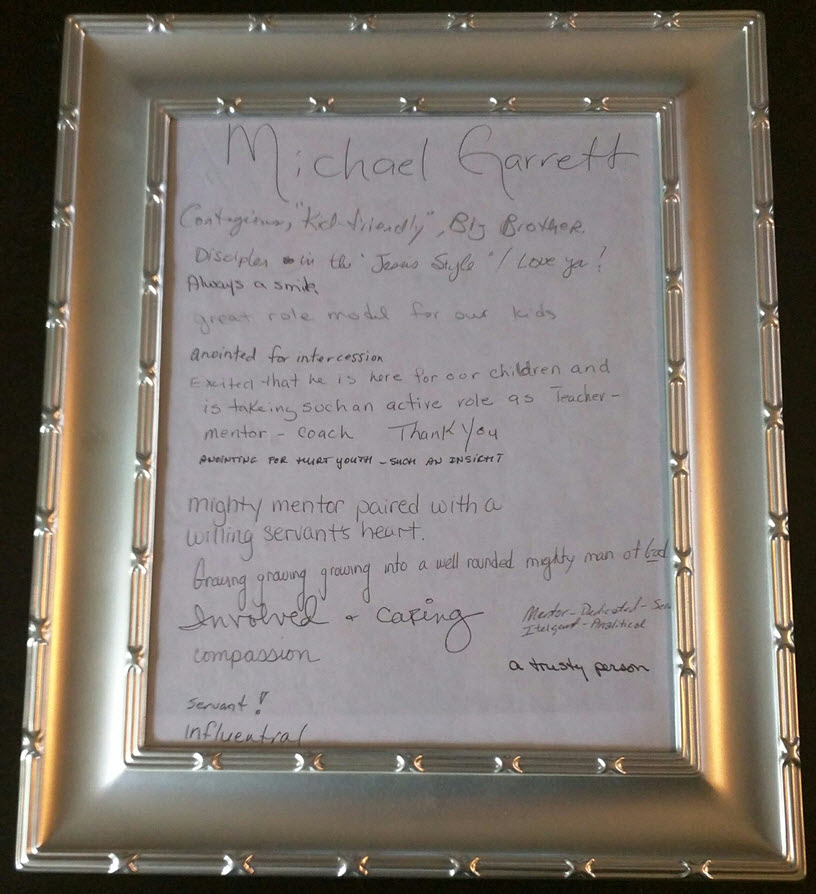 Michael Garrett
Contagious, "Kid-friendly", Big Brother.
Discipler in the "Jesus Style" / Love ya!
Always a smile.
great role model for our kids
anointed for intercession
Excited that he is here for our children and
is takeing such an active role as Teacher-
mentor - coach Thank You
ANOINTING FOR HURT YOUTH - SUCH AN INSIGHT
mighty mentor paired with a
willing servant's heart.
Growing growing growing into a well rounded mighty man of God
Involved + caring
Mentor - Dedicated -
Itelgent - Analitical
compassion
a trusty person
servant!
Influential